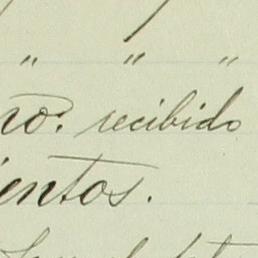 " " "
no. recibido
ientos.